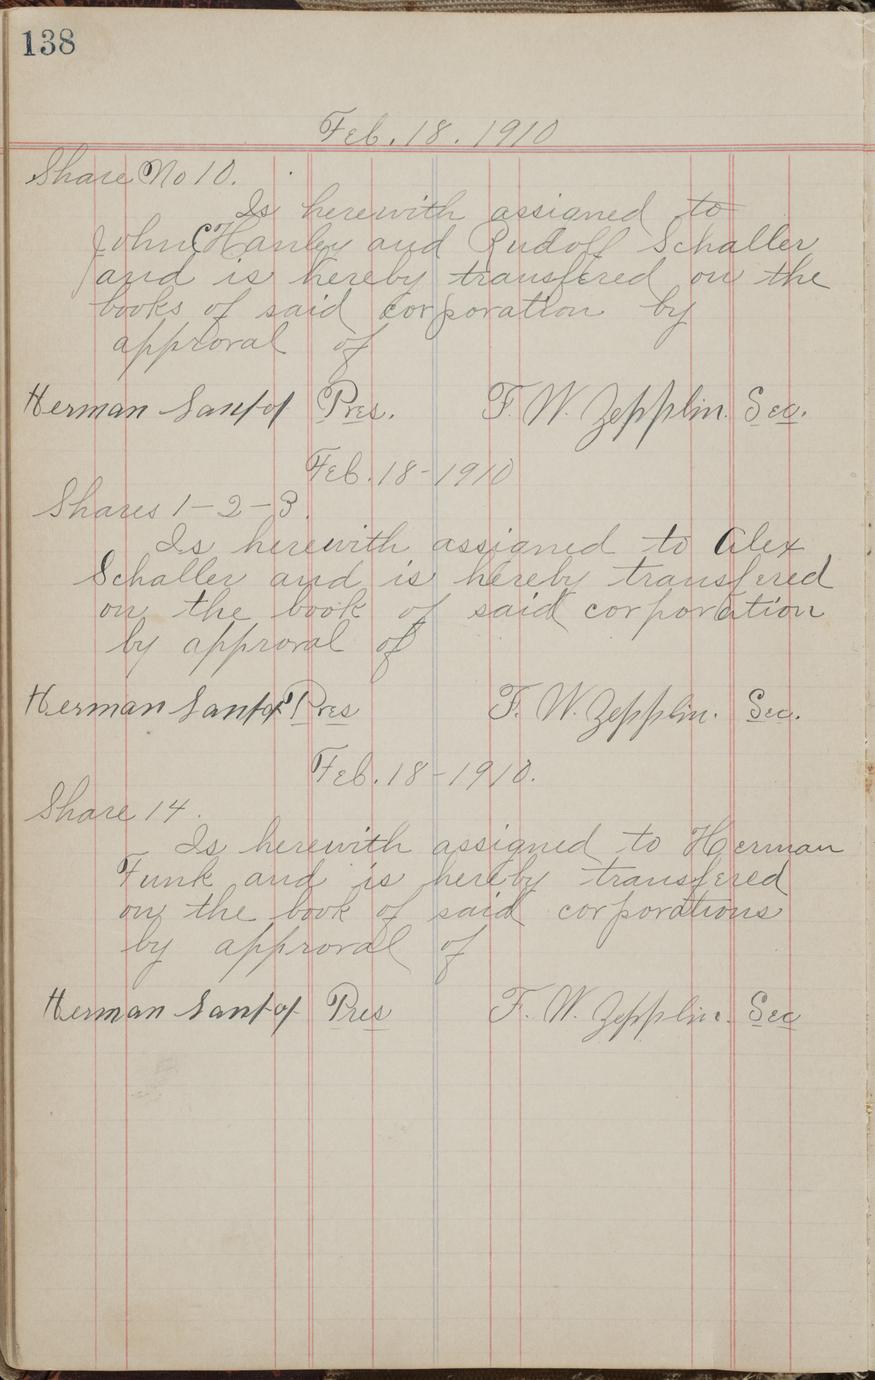 138
Feb. 18. 1910
Share No 10.
Is herewith assigned to
John Hanley and Rudolf Schaller
and is hereby transfered on the
books of said corporation by
approval of
Herman Pres. F. W. Zepplin. Sec.
Feb. 18-1910
Shares 1-2-3.
Is herewith assigned to Alex
Schaller and is hereby transfered
on the book of said corporation
by approval of
Herman Pres F. W. Zepplin. Sec.
Feb. 18-1910.
Share 14.
Is herewith assigned to Herman
Funk and is hereby transfered
on the book of said corporations
by approval of
Herman Pres F. W. Zepplin. Sec